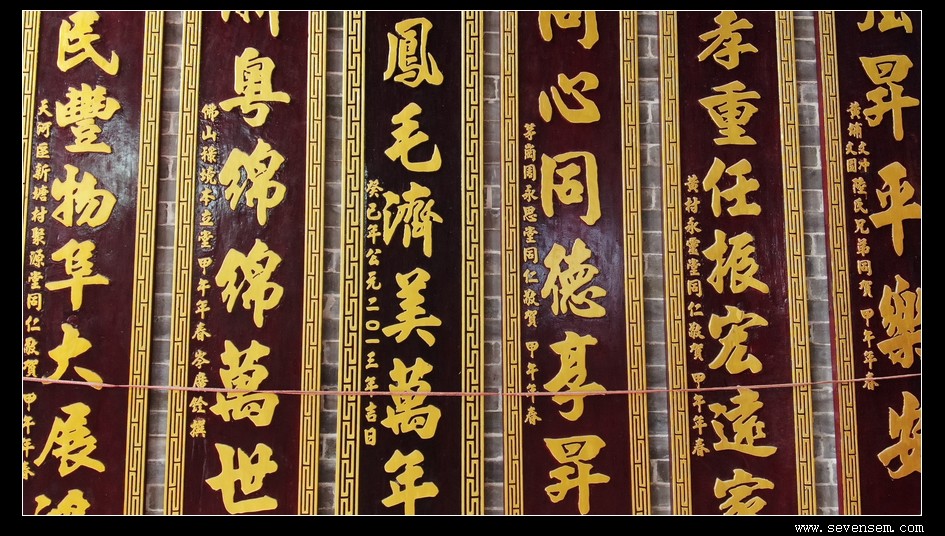 昇平樂
黃埔文沖
文園
陸氏兄弟同賀 甲午年春
孝重任振宏遠家
黃村永靈堂同仁敬賀 甲午年春
同心同德享昇
茅崗周永思堂同仁敬賀 甲午年春
鳳毛濟美萬年
癸巳年公元二〇一三年吉日
粵綿綿萬世
佛山祿境本立堂 甲午年春 岑廣銓撰
民豐物阜大展鴻
天河區新塘村聚源堂同仁敬賀 甲午年春
www.sevensem.com